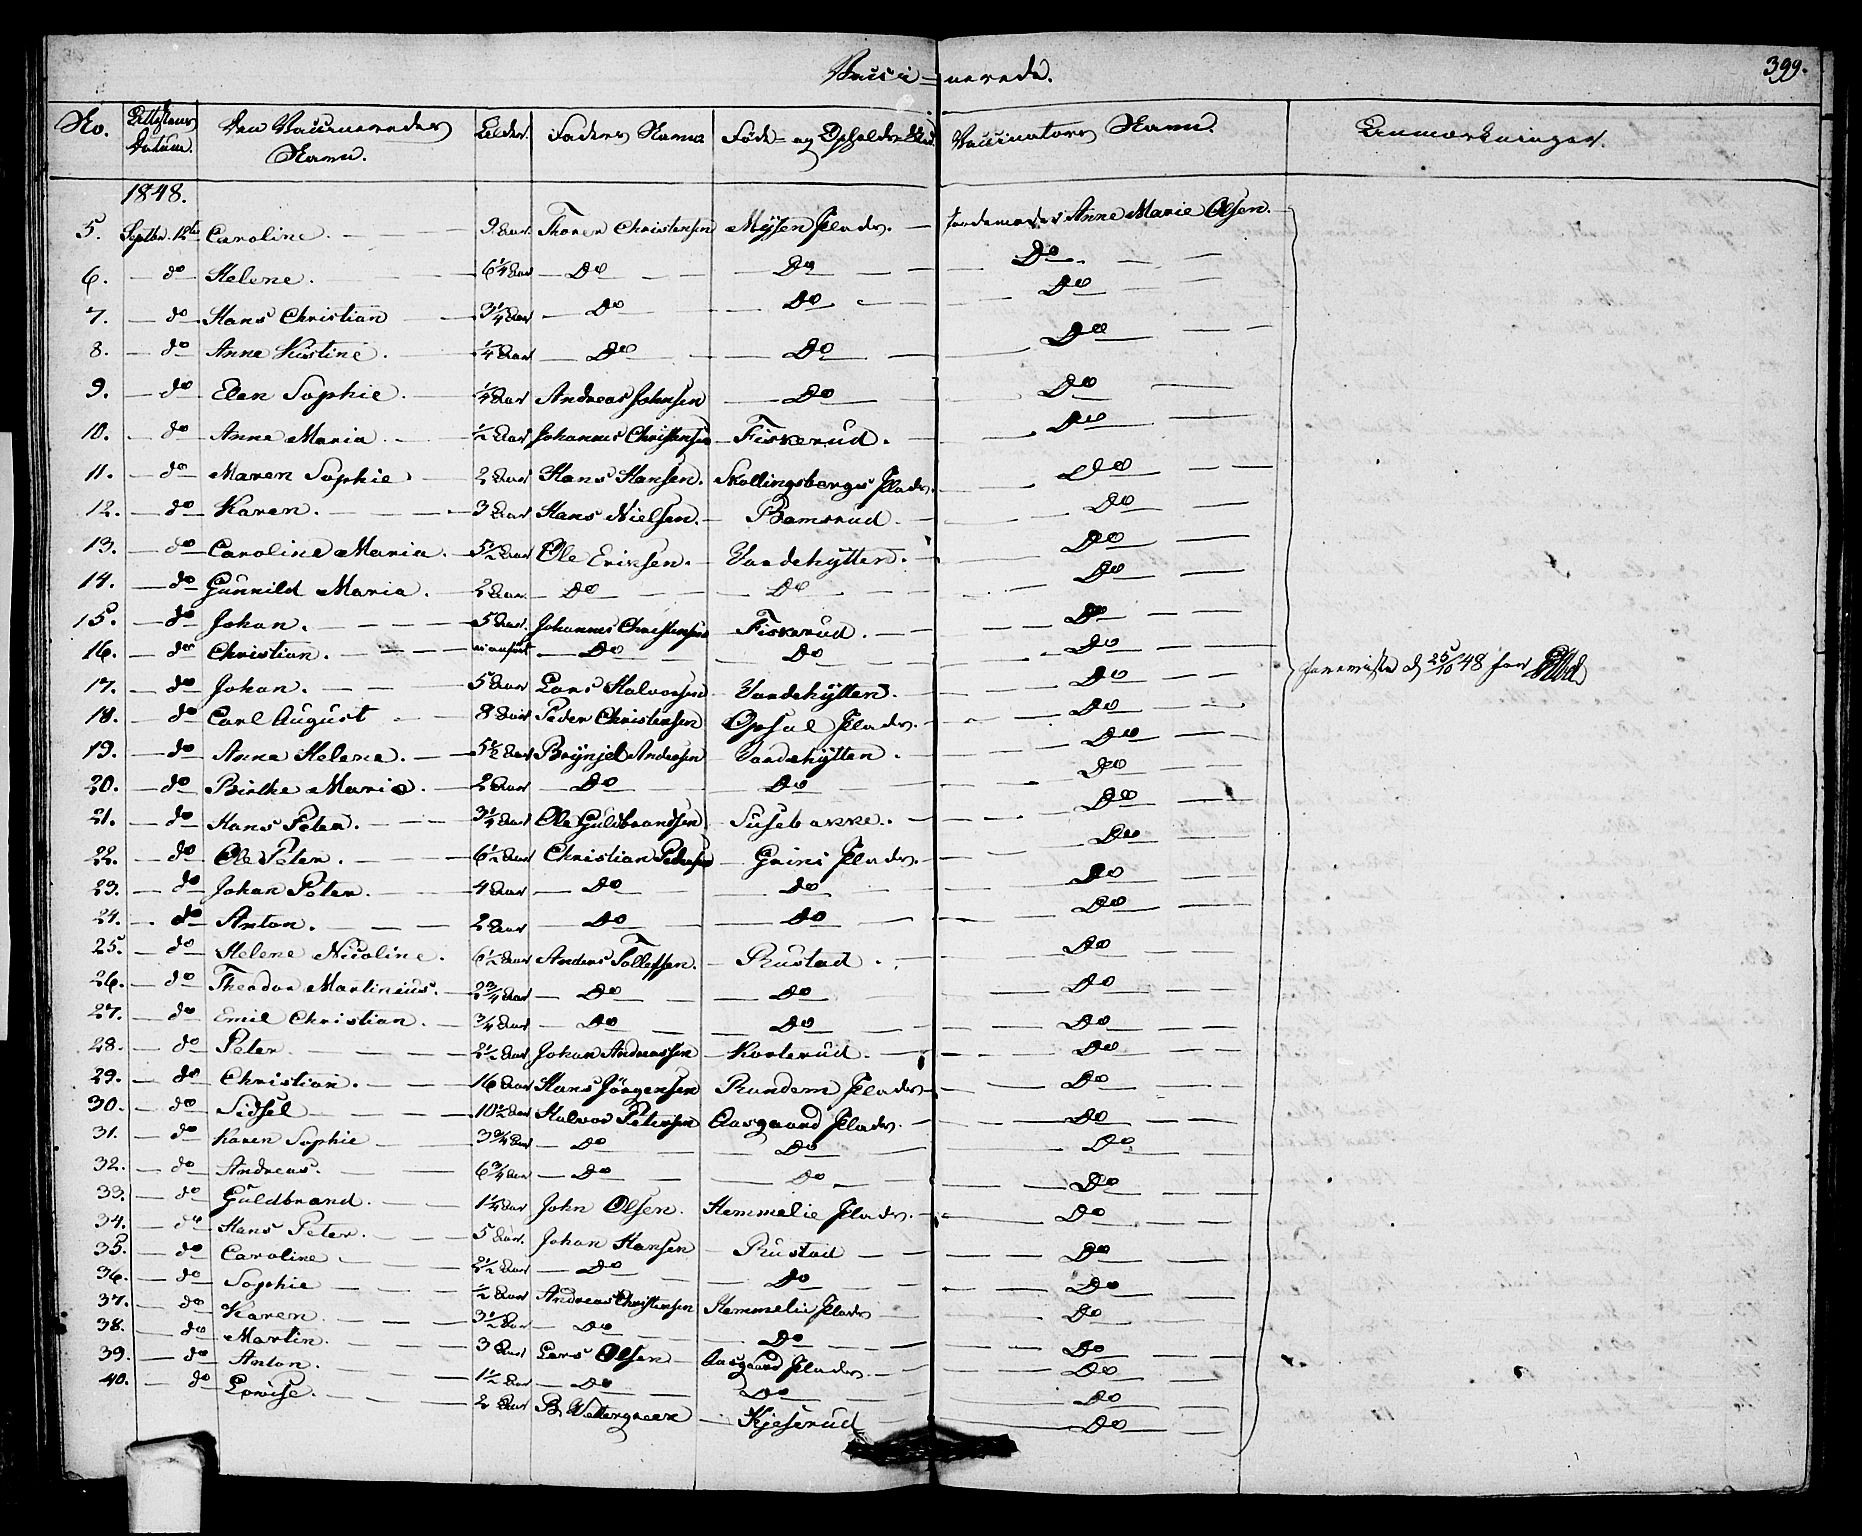 Vacci=nerede.
399.
No. Attestens Datum. Den Vaccineredes Navn. Alder. Faders Navn Føde- og Opholds-Sted. Vaccinators Navn. Anmærkninger.
1848.
5. Septbr. 12te Caroline. 9 Aar Thorer Christensen Mysen Plads. Jordemoder Anne Marie Olsen.
6. do Helene. 6 1/4 Aar Do Do Do
7. do Hans Christian 3 1/4 Aar Do Do Do
8. do Anne Kistine. 1/4 Aar Do Do Do
9. do Elen Sophie. 1/4 Aar Andreas Johnsen Do Do
10. do Anne Maria. 1/2 Aar Johannes Christensen Fiskerud. Do
11. do Maren Sophie 2 Aar Hans Hansen. Skollingsbergs Plads. Do
12. do Karen. 3 Aar Hans Nielsen. Ramsrud. Do
13. do Caroline Maria. 5 1/2 Aar Ole Eriksen. Vardehytten. Do
14. do Gunnild Maria. 2 Aar Do Do Do
15. do Johan. 5 Aar. Johannes Christensen Fiskerud. Do
16. do Christian. Do Do Do
17. do Johan. 5 Aar Lars Halvorsen Vardehytten. Do
18. do Carl August 8 Aar Peder Christensen Opsal Plads. Do
19. do Anne Helene. 5 1/2 Aar Brynjel Andersen Vardehytten. Do
20. do Birthe Maria. 2 Aar Do Do Do
21. do Hans Peter. 3 1/4 Aar Ole Guldbrandsen Susebakke. Do
22. do Ole Peter. 6 1/2 Aar Christian Pedersen Grini Plads. Do
23. do Johan Peter. 4 Aar Do Do Do
24. do Anton. 2 Aar Do Do Do
25. do Helene Nicoline. 6 1/2 Aar Anders Tollefsen. Rustad. Do
26. do Theodor Martinius. 2 3/4 Aar Do Do Do
27. do Emil Christian. 3/4 Aar Do Do Do
28. do Peter. 2 1/2 Aar Johan Andreassen Korterud. Do
29. do Christian. 16 Aar Hans Jörgensen Randem Plads Do
30. do Sidsel 10 1/2 Aar Halvor Petersen Aasgaard Plads. Do
31. do Karen Sophie 3 3/4 Aar Do Do Do
32. do Andreas. 6 3/4 Aar Do Do Do
33. do Guldbrand. 1 1/4 Aar John Olsen. Hemmelie Plads. Do
34. do Hans Peter. 5 Aar. Johan Hansen Rustad Do
35. do Caroline 2 1/2 Aar Do Do Do
36. do Sophie 1/2 Aar Andreas Christensen Hemmelie Plads Do
37. do Karen. 3 1/2 Aar Do Do Do
38. do Martin. 3 Aar Lars Olsen Aasgaard Plads. Do
39. do Anton. 1 1/2 Aar Do Do Do
40. do Lovise. 2 Aar B. Vettergreen Kjeserud Do
foreviste d 25/10 48 for